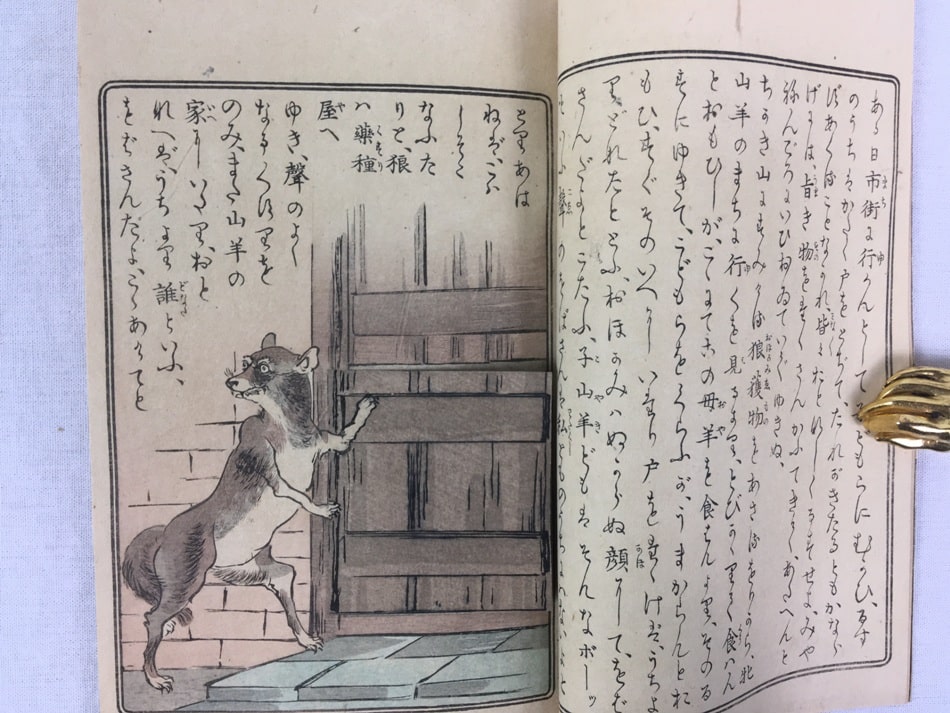 ある日市街に行かんとして、こどもらにむかひ、るす
のうちはかたく戸をとぢてたれがきたるともかなら
ずあくることなかれ、皆々おとなしくるすせよ、みや
げには、旨き物をたくさんかふてきて、あたへんと
ねんごろにいひおゐていでゆきぬ、
ちかき山にすみける狼獲物をあさるをりから、牝
山羊のまちに行くを見るより、とびかゝりて食はん
とおもひしが、こゝにてこの母羊を食はんより、そのる
すにゆきて、こどもらをくらふが、うまからんとお
もひ、すぐそのいへにいたり戸をたゝけば、うちよ
りどれたととふ、おほかみハぬからぬ顔にして、をば
さんだよとこたふ、子山羊どもはそんなボーッ
といふ聲のをばさんは私どものうちにはないよと
とりあは
ねば、
しそこ
なふた
りと、狼
ハ藥種
屋へ
ゆき、聲のよく
なるくすりを
のみ、また山羊の
家にいたり、おと
れへば、うちより誰といふ、
をばさんだよ、こゝあけてと